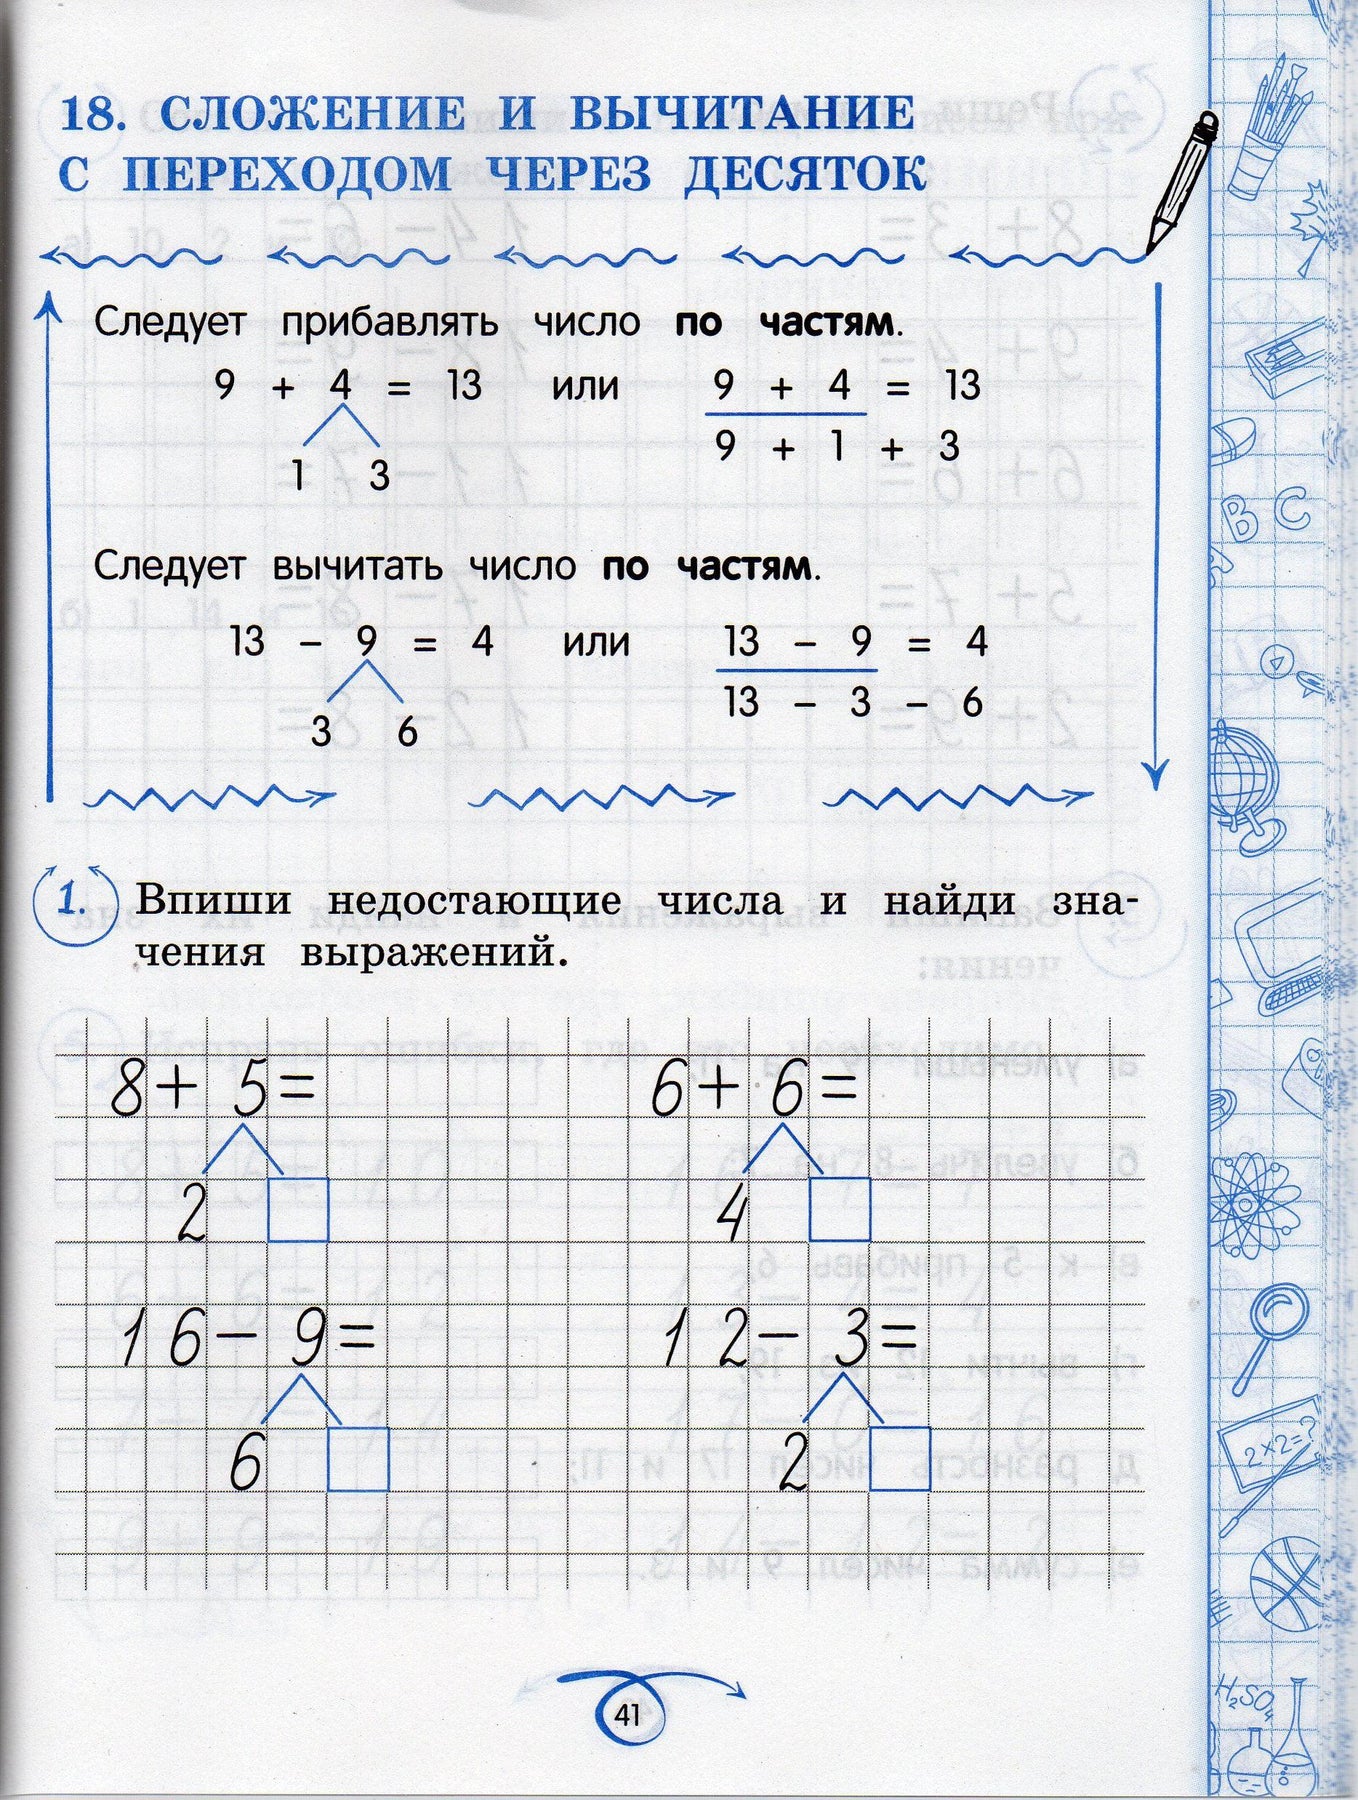 18. СЛОЖЕНИЕ И ВЫЧИТАНИЕ
С ПЕРЕХОДОМ ЧЕРЕЗ ДЕСЯТОК
Следует прибавлять число по частям.
9 + 4 = 13 или 9 + 4 = 13
1 3
9 + 1 + 3
Следует вычитать число по частям.
13 – 9 = 4 или 13 – 9 = 4
3 6
13 – 3 – 6
1. Впиши недостающие числа и найди зна-
чения выражений.
8+ 5= 6+ 6=
2 4
16– 9= 12– 3=
6 2
41
B C
2×2=?
H₂SO₄